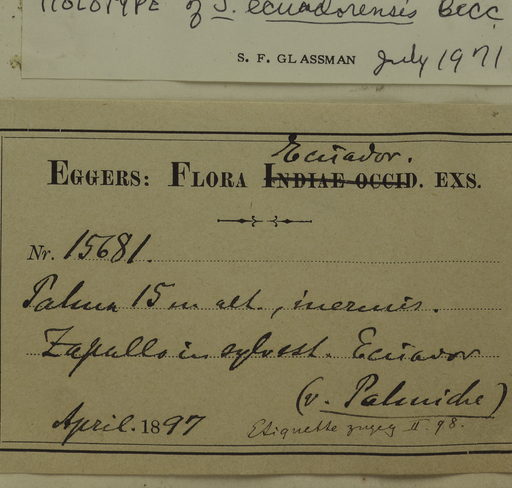 HOLOTYPE of S. ecuadorensis Becc
S. F. GLASSMAN July 1971
Ecuador.
EGGERS: FLORA INDIAE OCCID. EXS.
Nr. 15681.
Palma 15 m alt., inermis.
Zapallo in sylvest. Ecuador
(v. Palmiche)
April. 1897
Etiquette zugeg II. 98.